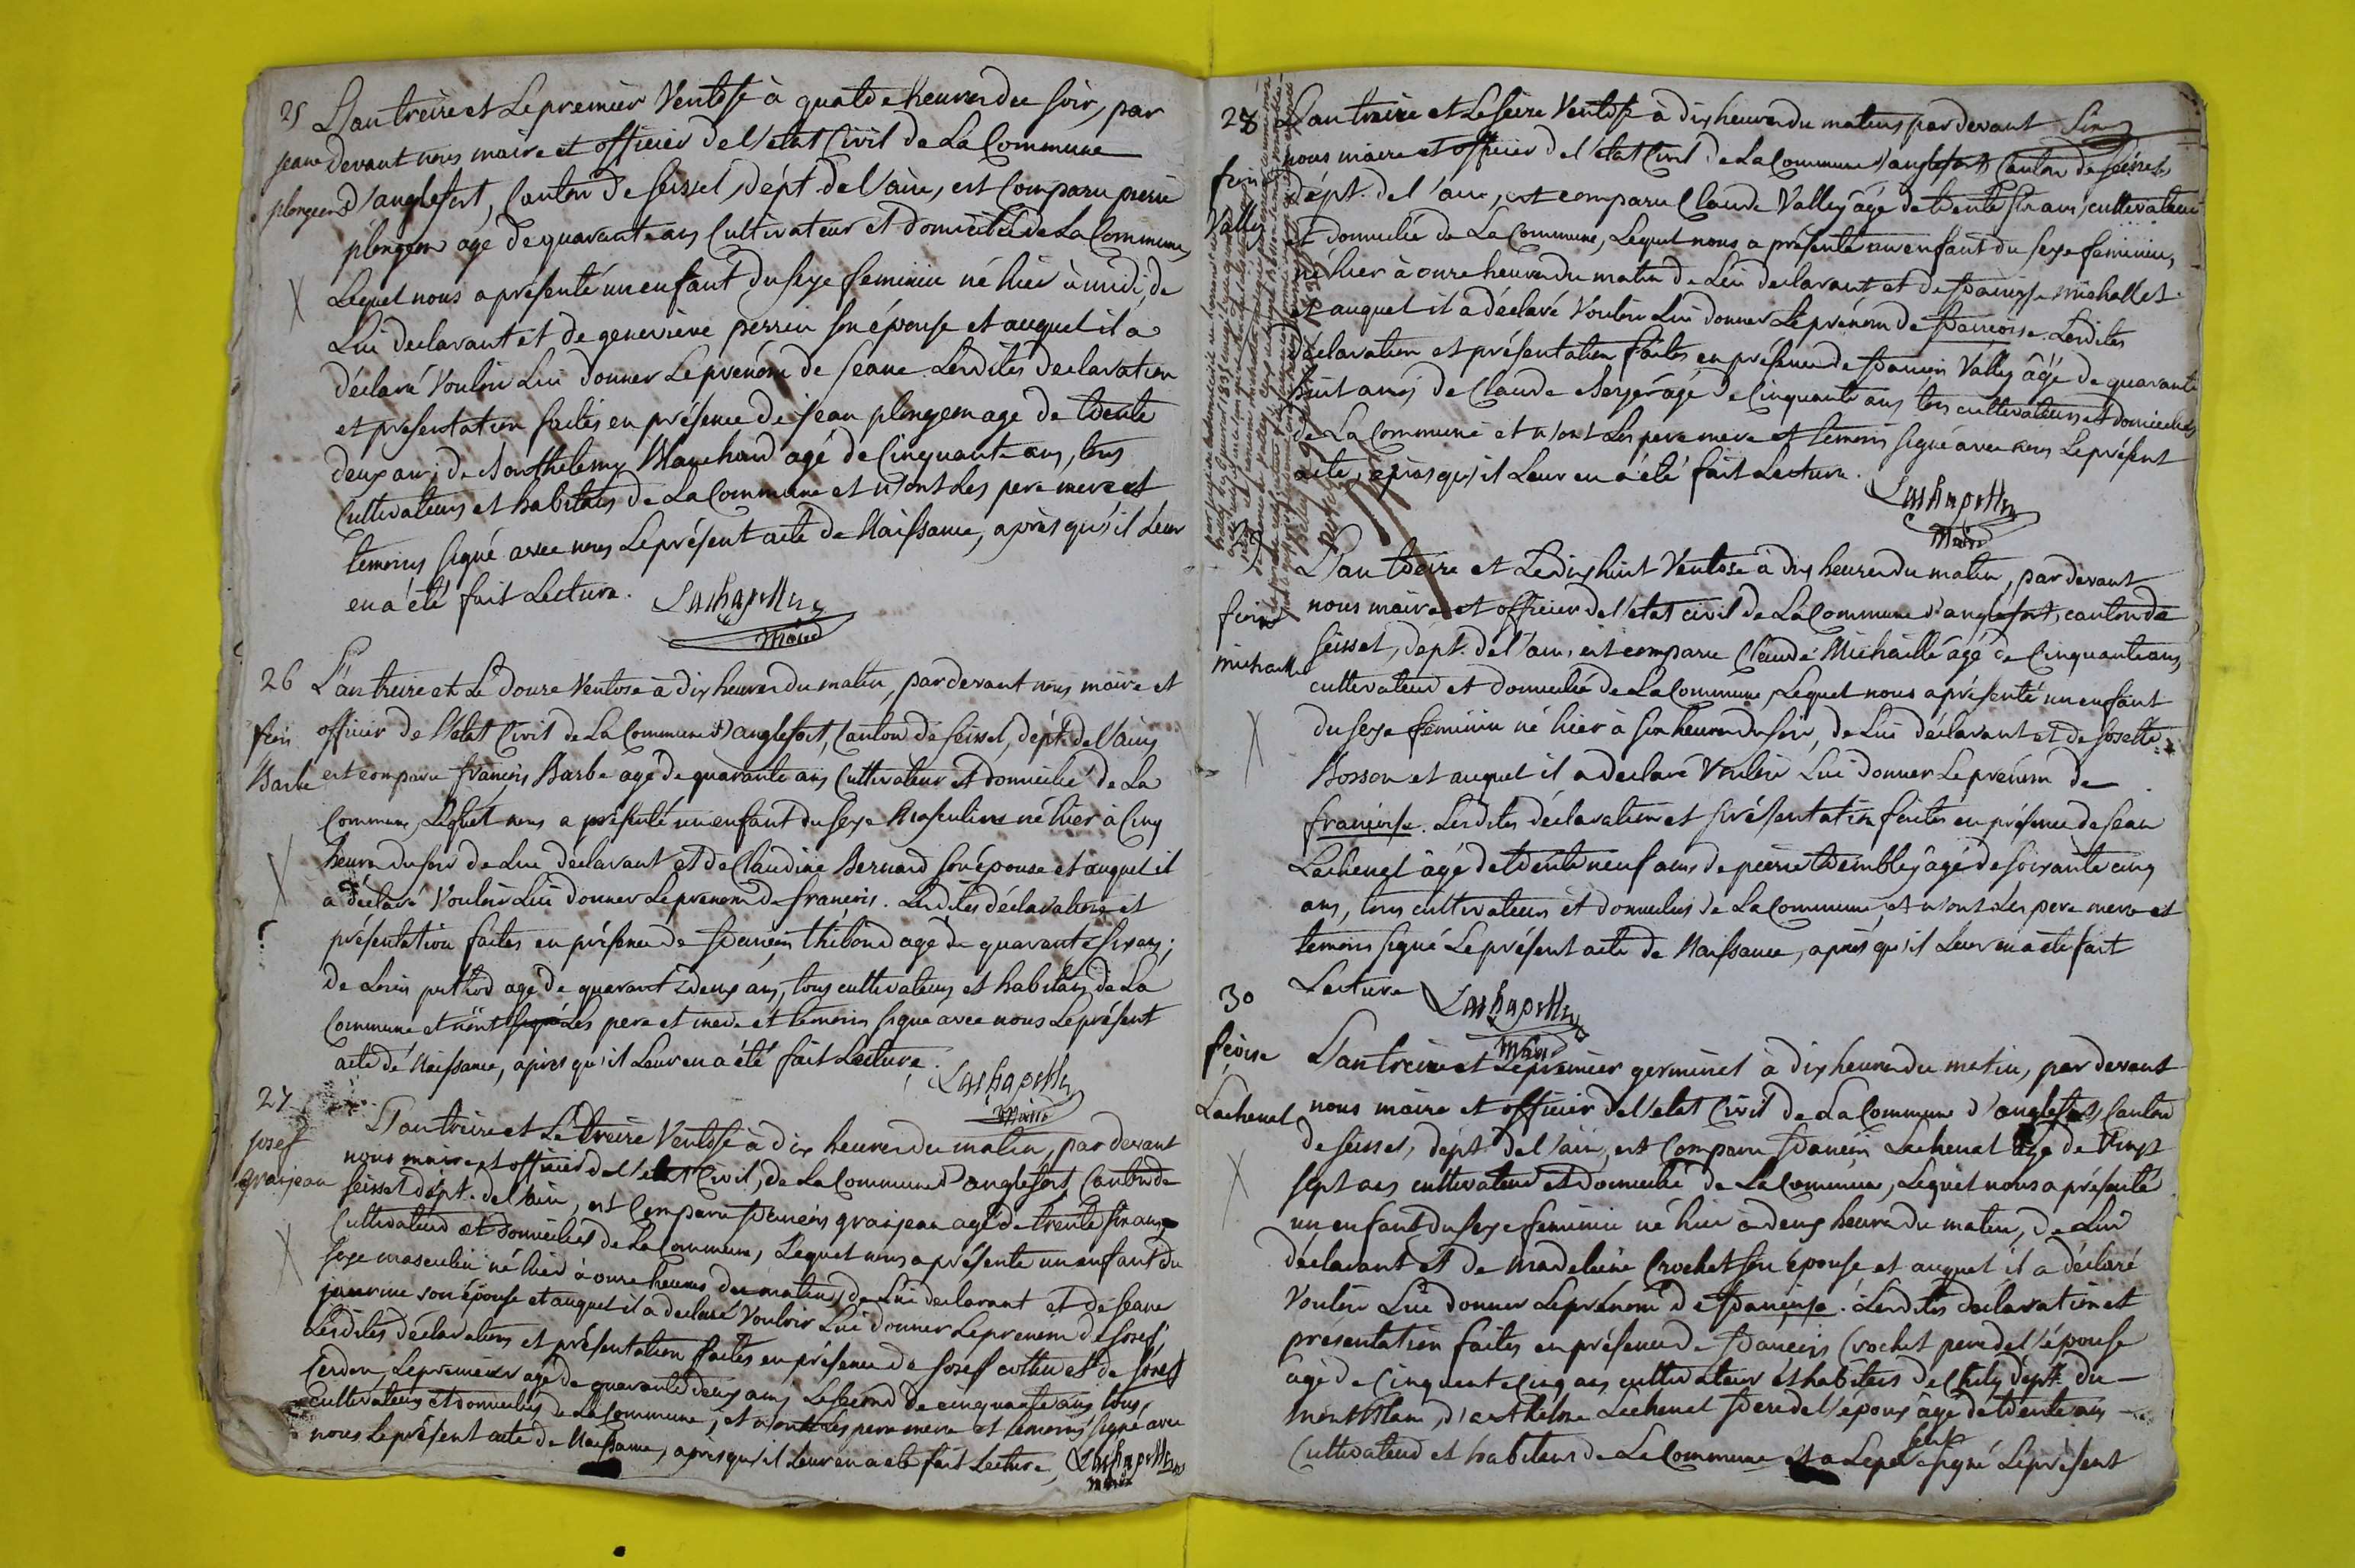 25
L'an treize et le premier Ventose à quatre heures du soir, par
jeane
devant nous maire et officier de l'etat Civil de La Commune
plongeon
d'anglefort, Canton de seissel, dépt. de l'ain, est Comparu pierre
plongeon agé de quarante ans Cultivateur et domicilié de La Commune,
Lequel nous a présenté un enfant du sexe feminin né hier à midi, de
Lui declarant et de genevieve perrin son épouse et auquel il a
déclaré Vouloir Lui donner Le prénom de jeane. Lesdites declaration
et presentation faites en présence de jean plongeon age de trente
deux ans; de Barthelemy Marchand agé de Cinquante ans, tous
Cultivateurs et habitans de La Commune et n'ont Les pere mere et
temoins signé avec nous Le présent acte de Naissance, après qu'il Leur
en a été fait Lecture. Lachapelle
Maire
26
L'an treize et Le douze Ventose à dix heures du matin, par devant nous maire et
officier de l'état Civil de La Commune d'anglefort, Canton de seissel, dépt. de l'ain,
fcois
Barbe
est comparu françois Barbe agé de quarante ans Cultivateur et domicilié de La
Commune, Lequel nous a présenté un enfant du sexe Masculin né hier à Cinq
heures du soir de Lui déclarant et de Claudine Bernard son épouse et auquel il
a déclaré Vouloir Lui donner Le prenom de françois. Lesdites déclaration et
présentation faites en présence de françois thiboud agé de quarante six ans;
de Louis puthod agé de quarante deux ans, tous cultivateurs et habitans de La
Commune et n'ont signé Les pere et mere et temoins signé avec nous Le présent
acte de Naissance, après qu'il Leur en a été fait Lecture. Lachapelle
Maire
27
josef
grosjean
L'an treize et Le treize Ventose à dix heures du matin, par devant
nous maire et officier de l'etat Civil, de La Commune d'anglefort, Canton de
seissel dépt. de l'ain, est Comparu françois grosjean agé de trente six ans
Cultivateur et domicilié de La Commune, Lequel nous a présenté un enfant du
sexe masculin né hier à onze heures du matin, de Lui declarant et de jeane
son épouse et auquel il a déclaré Vouloir Lui donner Le prenom de josef,
Lesdites déclaration et présentation faites en présence de josef cottin et de josef
Cerdon, Le premier agé de quarante deux ans, Le second de cinquante ans, tous
cultivateurs et domiciliés de La Commune, et n'ont Les pere mere et temoins signé avec
nous Le présent acte de Naissance, apres qu'il Leur en a été fait Lecture. Lachapelle
Maire
28
L'an treize et Le seize Ventose à dix heures du matin par devant
nous maire et officier de l'état Civil de La Commune d'anglefort Canton de seissel
fcoise
Valley
dépt. de l'ain, est comparu Claude Valley âgé de trente six ans, cultivateur
et domicilié de La Commune, Lequel nous a présenté un enfant du sexe feminin,
né hier à onze heures du matin de Lui declarant et de françoise michallet
et auquel il a déclaré Vouloir Lui donner Le prénom de françoise. Lesdites
déclaration et présentation faites en présence de françois Valley âgé de quarante
huit ans; de Claude Berger âgé de Cinquante ans tous cultivateurs et domiciliés
de La Commune et n'ont Les pere mere et temoins signé avec nous Le présent
acte, après qu'il Leur en a été fait Lecture.
Lachapelle
Maire
fcoise
michaille
L'an treize et Le dix huit Ventose à dix heures du matin, par devant
nous maire et officier de l'etat civil de La Commune d'anglefort, canton de
seissel, dépt. de l'ain, est comparu Claude Michaille âgé de Cinquante ans,
cultivateur et domicilié de La Commune, Lequel nous a présenté un enfant
du sexe feminin né hier à six heures du soir, de Lui déclarant et de josette
Bosson et auquel il a déclaré Vouloir Lui donner Le prénom de
françoise. Lesdites déclaration et présentation faites en présence de jean
Lachenal âgé de trente neuf ans de pierre trembley âgé de soixante cinq
ans, tous cultivateurs et domiciliés de La Commune, et n'ont Les pere mere et
temoins signé Le présent acte de Naissance, après qu'il Leur en a été fait
Lecture Lachapelle
Maire
30
fcoise
Lachenal
L'an treize et Le premier germinal à dix heures du matin, par devant
nous maire et officier de l'etat Civil de La Commune d'anglefort, Canton
de seissel, dépt. de l'ain, est Comparu françois Lachenal âgé de Vingt
sept ans cultivateur et domicilié de La Commune, Lequel nous a présenté
un enfant du sexe feminin né hier à deux heures du matin, de Lui
déclarant et de Madeleine Crochet son épouse et auquel il a déclaré
Vouloir Lui donner Le prénom de françoise. Lesdites déclaration et
présentation faites en présence de françois Crochet pere de l'épouse
agé de Cinquante Cinq ans cultivateur et habitans de dépt. du
Mont Blanc, d'anthelme Lachenal frere de l'époux âgé de trente ans
Cultivateur et habitans de La Commune et a Le pere seul signé Le présent